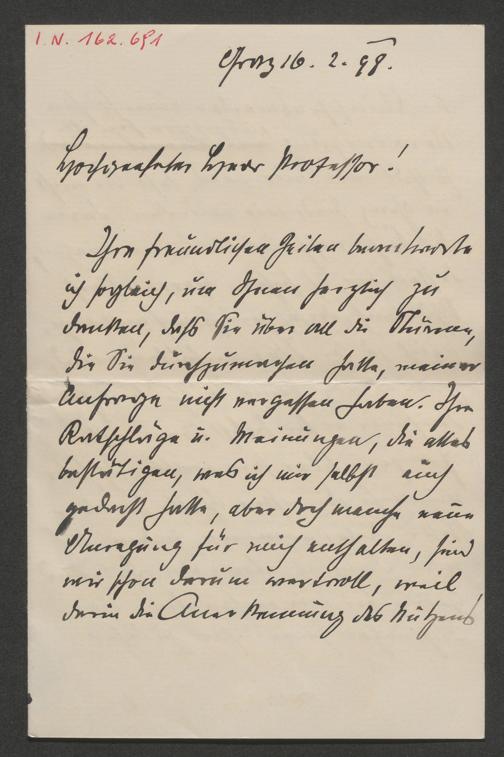 I.N. 162.691
Graz 16. 2. 98.
Hochgeehrter Herr Professor!
Ihre freundlichen Zeilen beantworte
ich sogleich, um Ihnen herzlich zu
danken, daß Sie über all die Stürme,
die Sie durchzumachen hatte, meiner
Anfrage nicht vergessen haben. Ihre
Ratschläge u. Meinungen, die alles
bestätigen, was ich mir selbst auch
gedacht hatte, aber doch manche neue
Anregung für mich enthalten, sind
mir schon darum wertvoll, weil
darin die Anerkennung des Nutzens